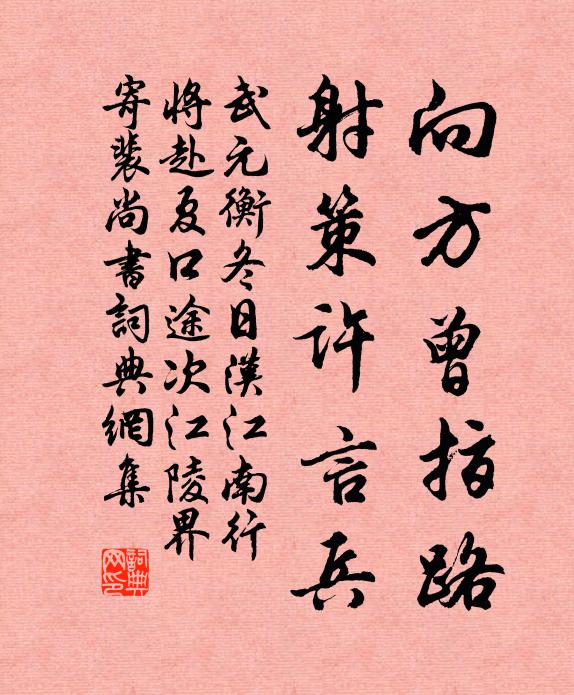 向方曾指路
射策许言兵
武元衡冬日漢江南行
将赴夏口途次江陵界
寄裴尚書詞典網集
詞典
网印